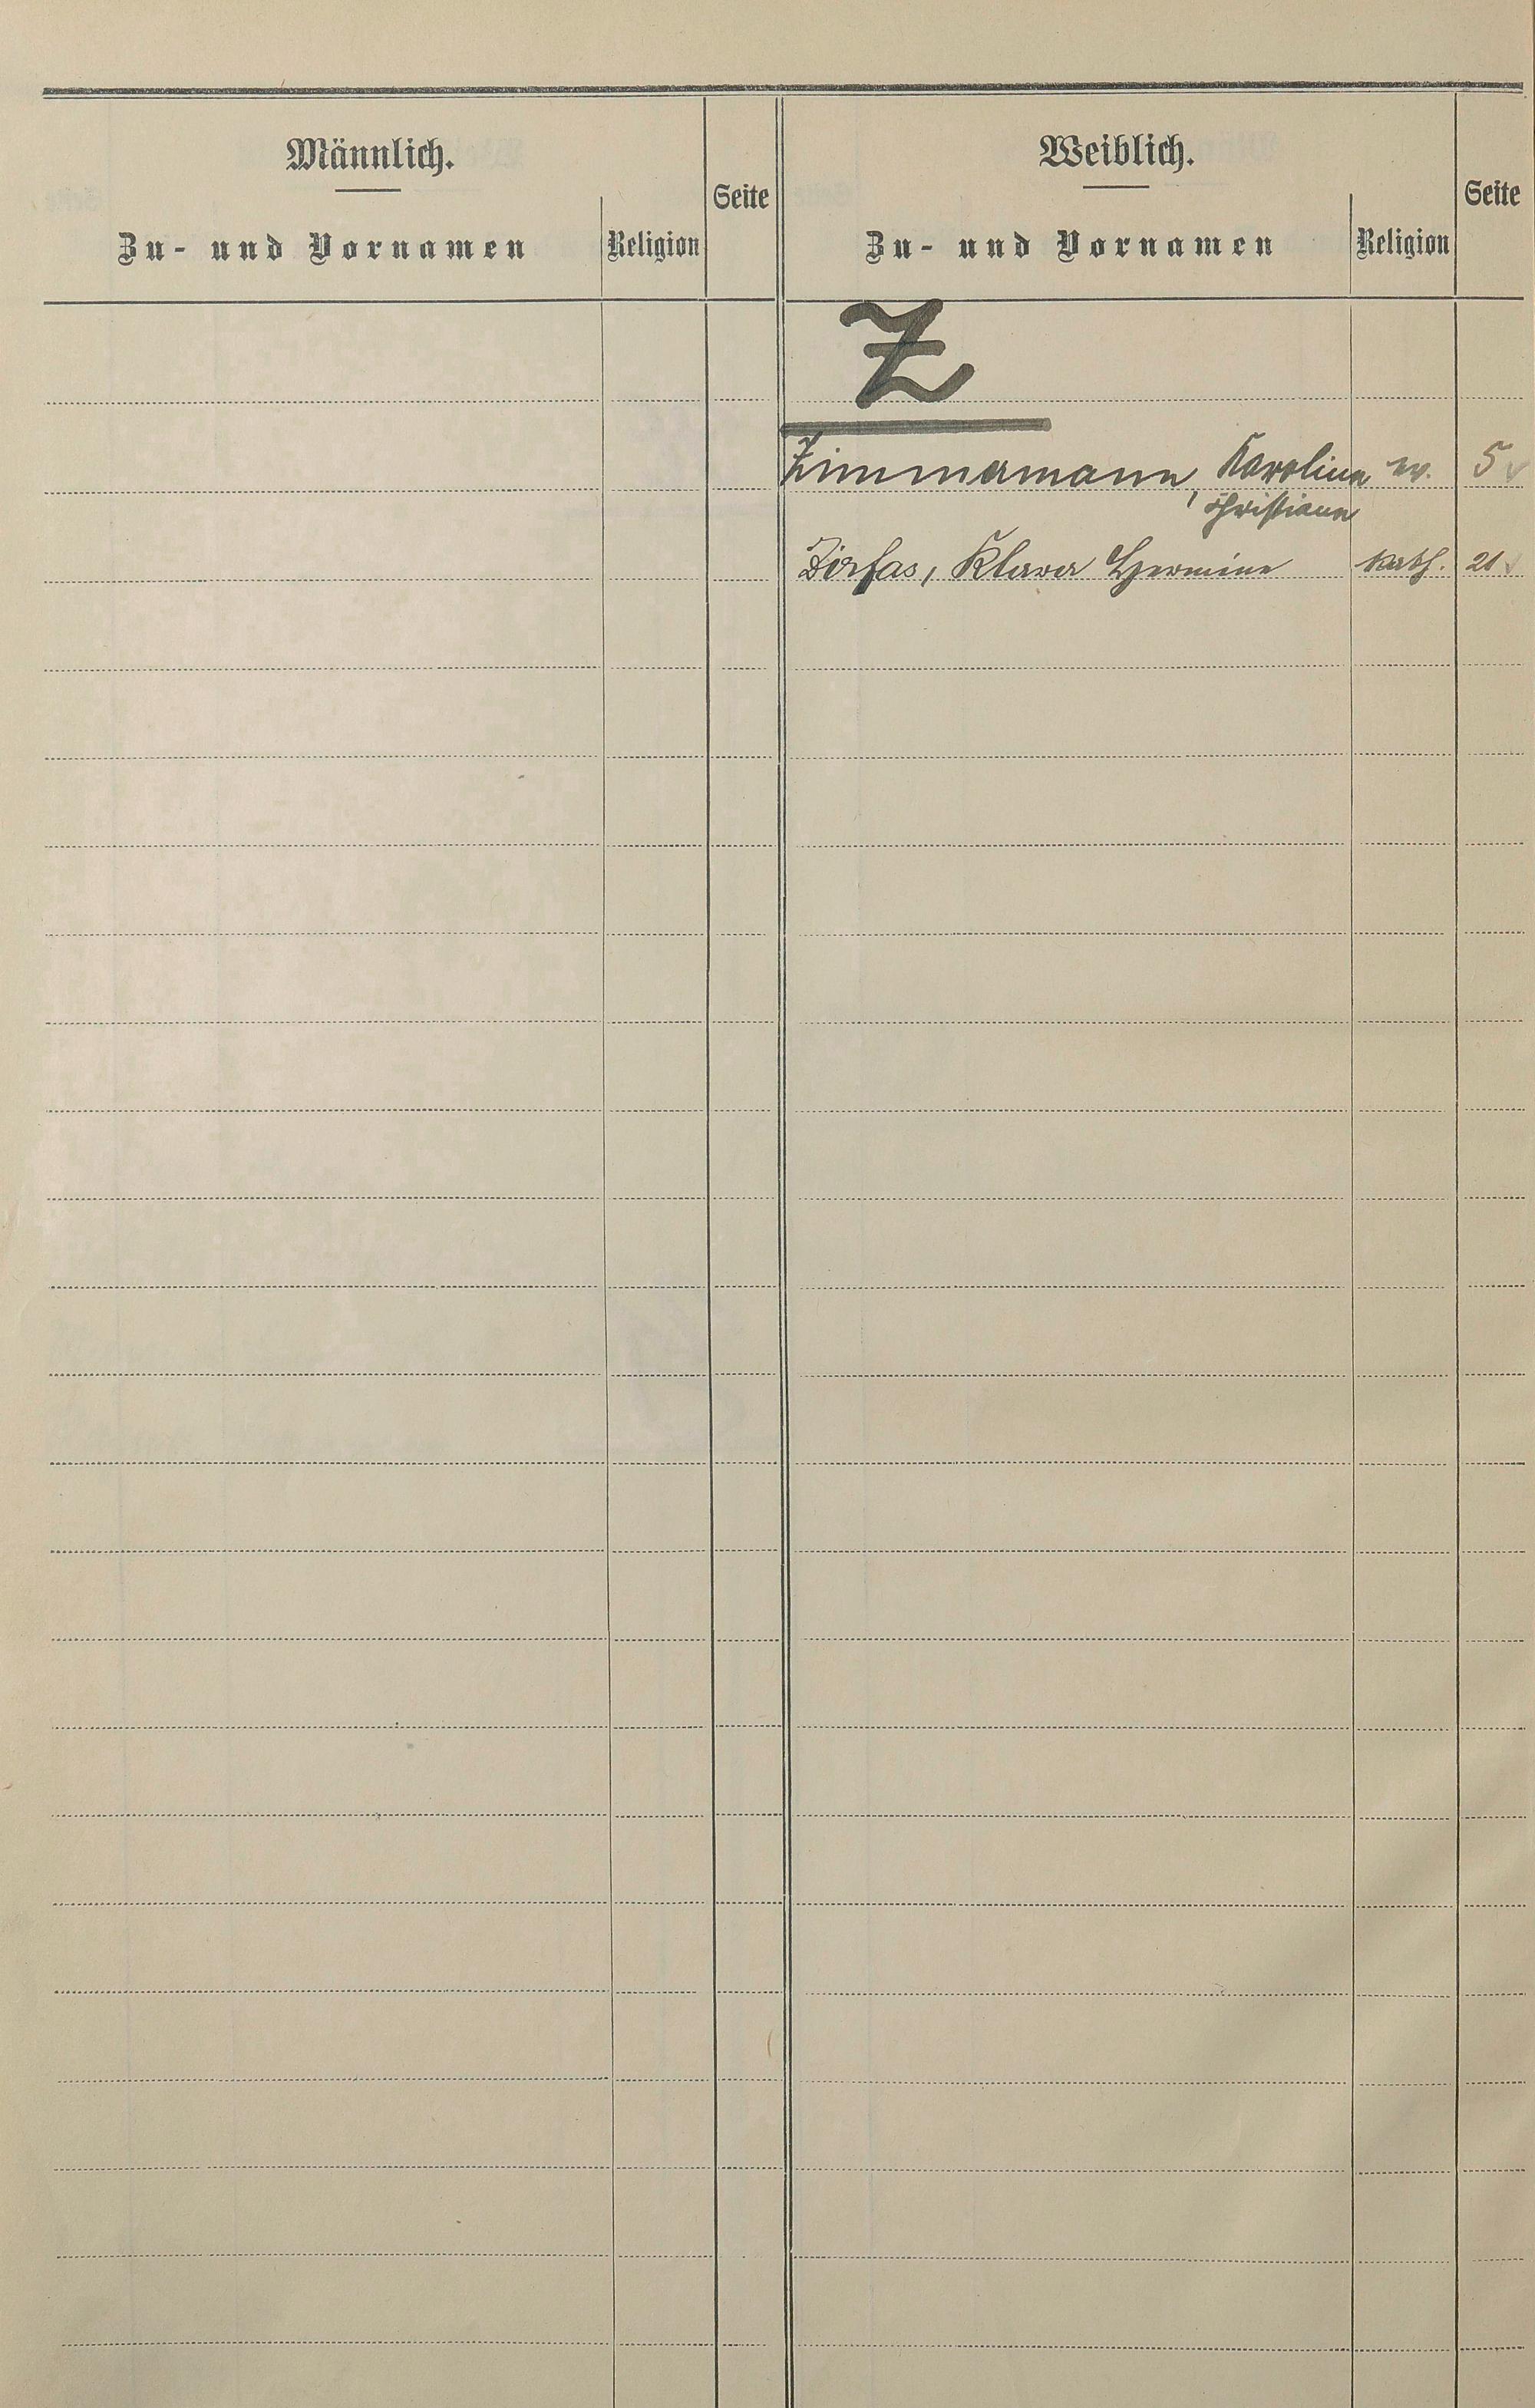 Männlich.
Seite
Zu- und Vornamen
Religion
Weiblich.
Seite
Zu- und Vornamen
Religion
Z
Zimmermann, Karoline ev. 5
Christiane
Zirfas, Klara Hermine kath. 21